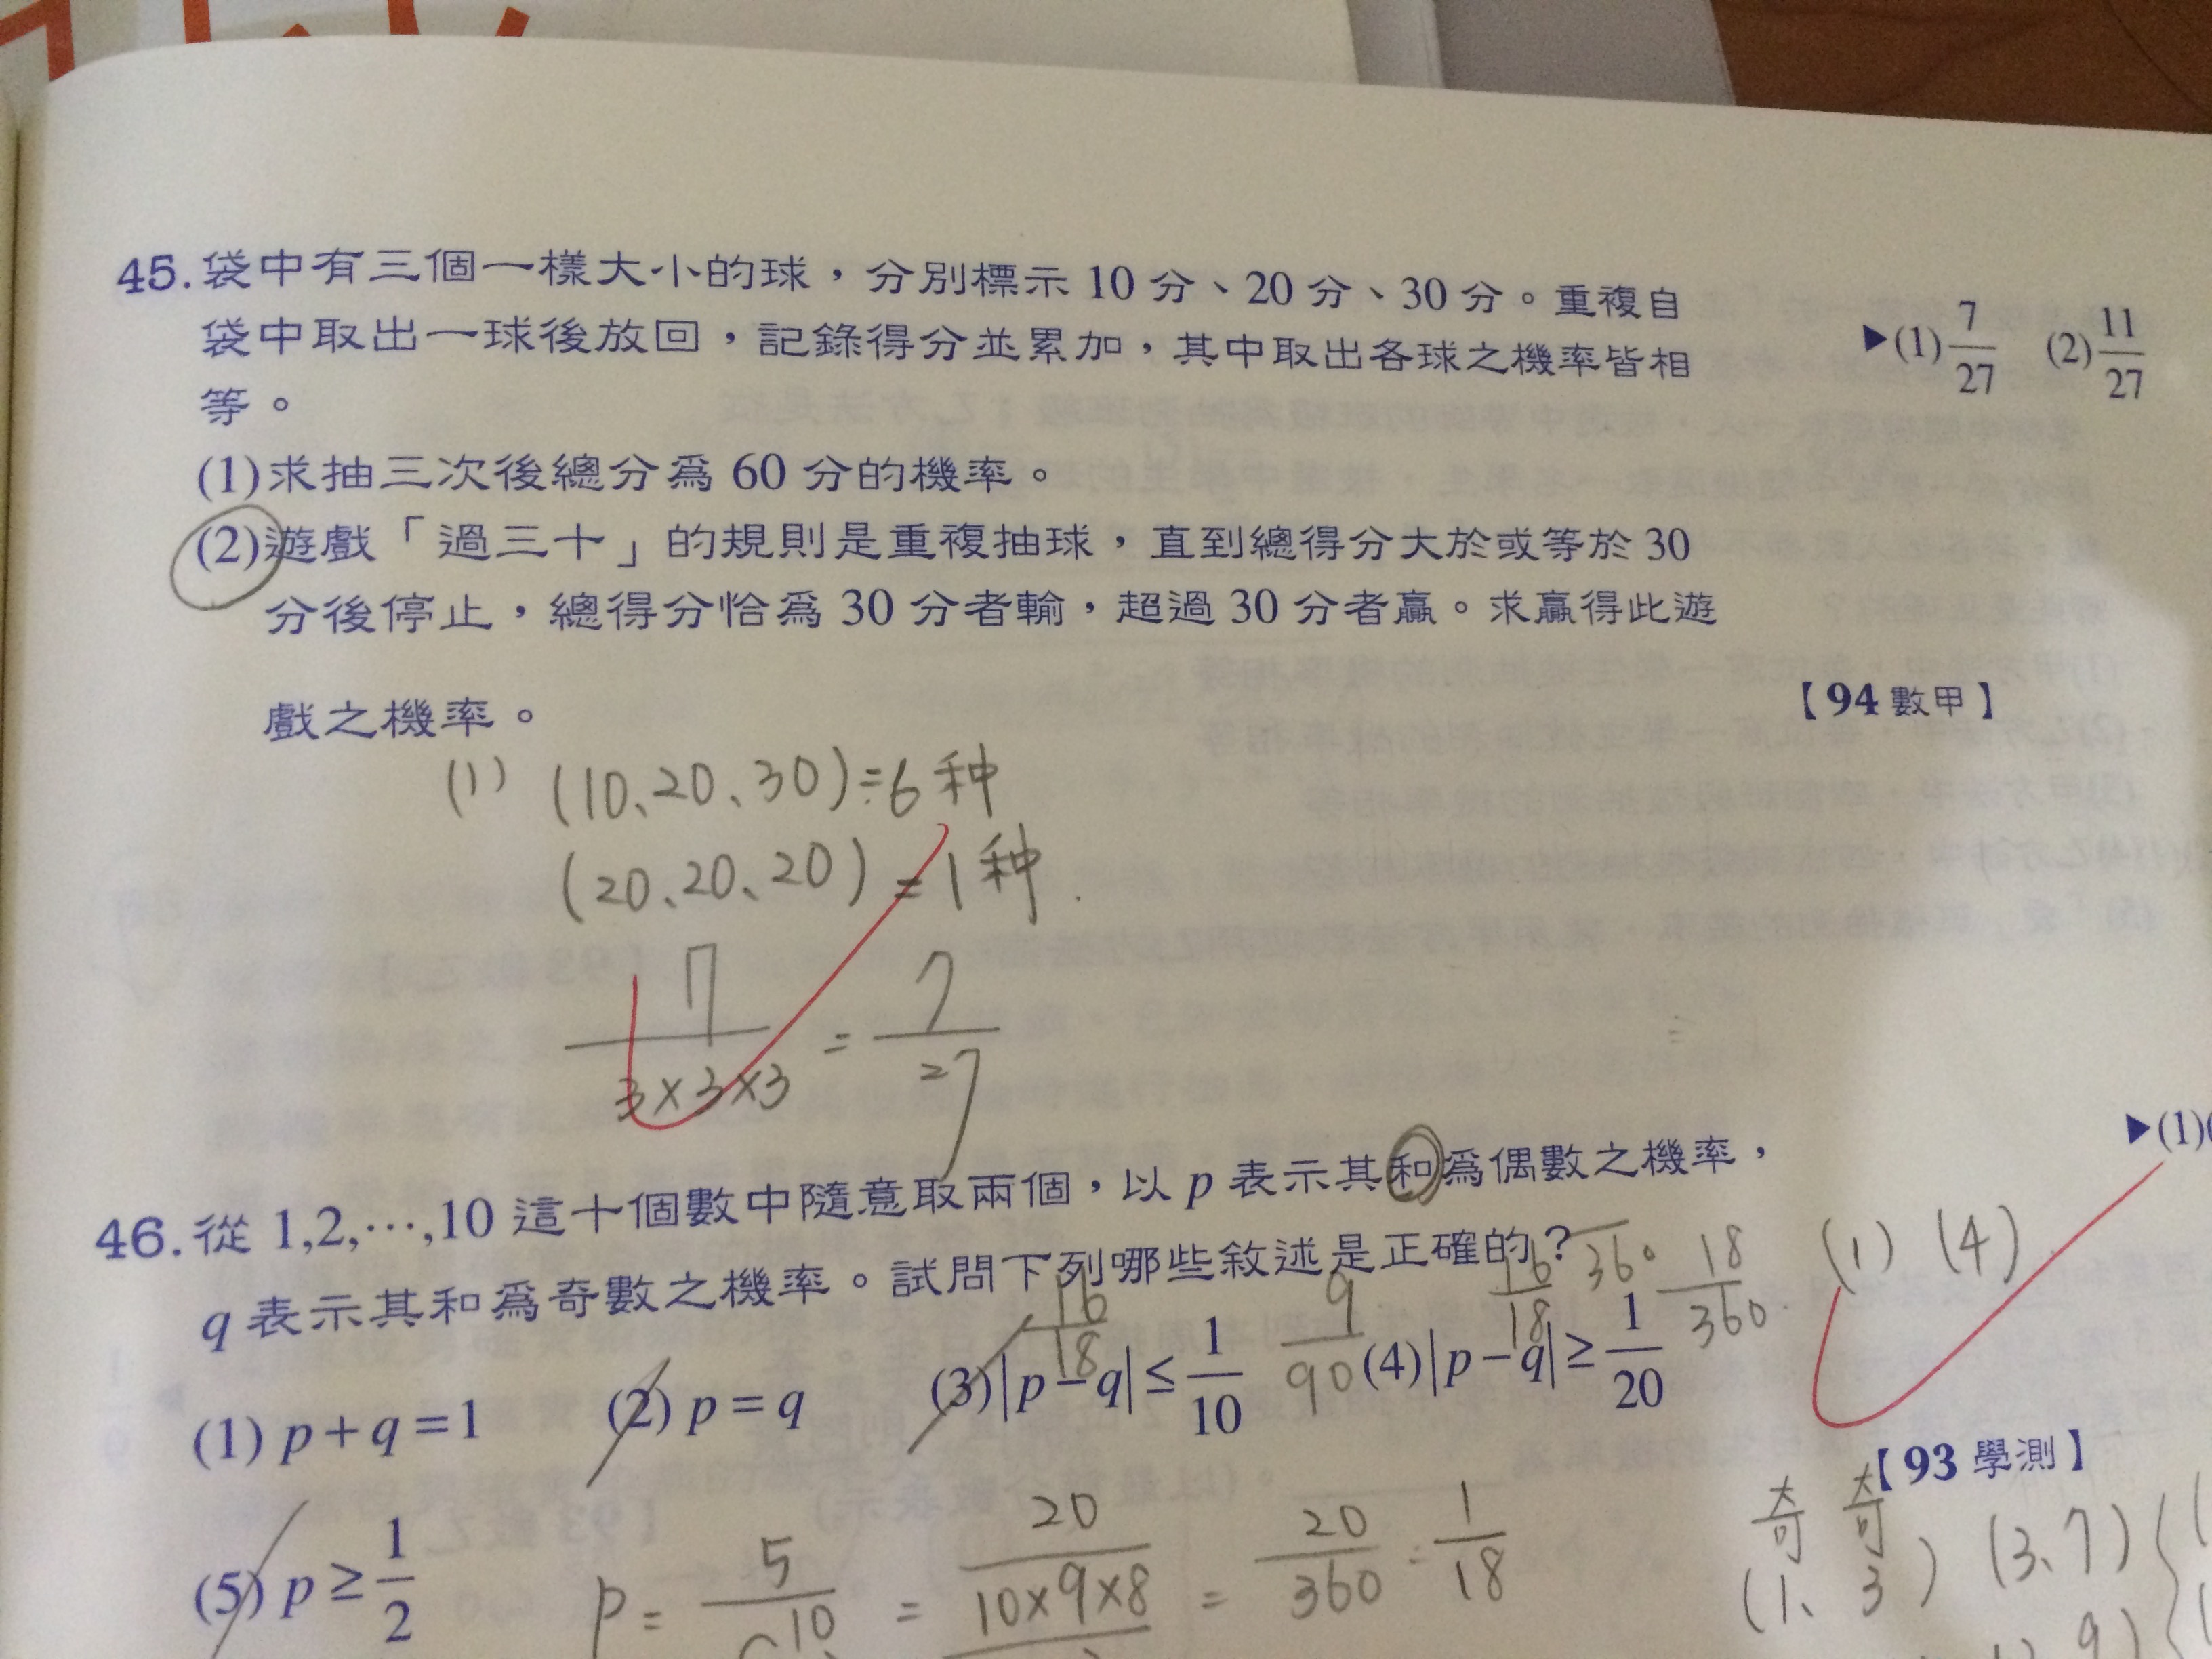 45. 袋中有三個一樣大小的球，分別標示 10 分、20 分、30 分。重複自
袋中取出一球後放回，記錄得分並累加，其中取出各球之機率皆相
等。
▶(1) 7/27 (2) 11/27
(1)求抽三次後總分為 60 分的機率。
(2)遊戲「過三十」的規則是重複抽球，直到總得分大於或等於 30
分後停止，總得分恰為 30 分者輸，超過 30 分者贏。求贏得此遊
戲之機率。
【94 數甲】
(1) (10、20、30) = 6 种
(20、20、20) = 1 种.
7/(3×3×3) = 7/27
▶(1)(
46. 從 1,2,⋯,10 這十個數中隨意取兩個，以 p 表示其和為偶數之機率，
q 表示其和為奇數之機率。試問下列哪些敘述是正確的？
16/18 9/90 16/18 360 18/360
(1) (4)
(1) p+q=1 (2) p=q (3)|p−q|≤1/10 (4)|p−q|≥1/20
【93 學測】
(5) p≥1/2
p = 5/10 = 20/(10×9×8) = 20/360 = 1/18
奇 奇
(1、3) (3、7)
9)